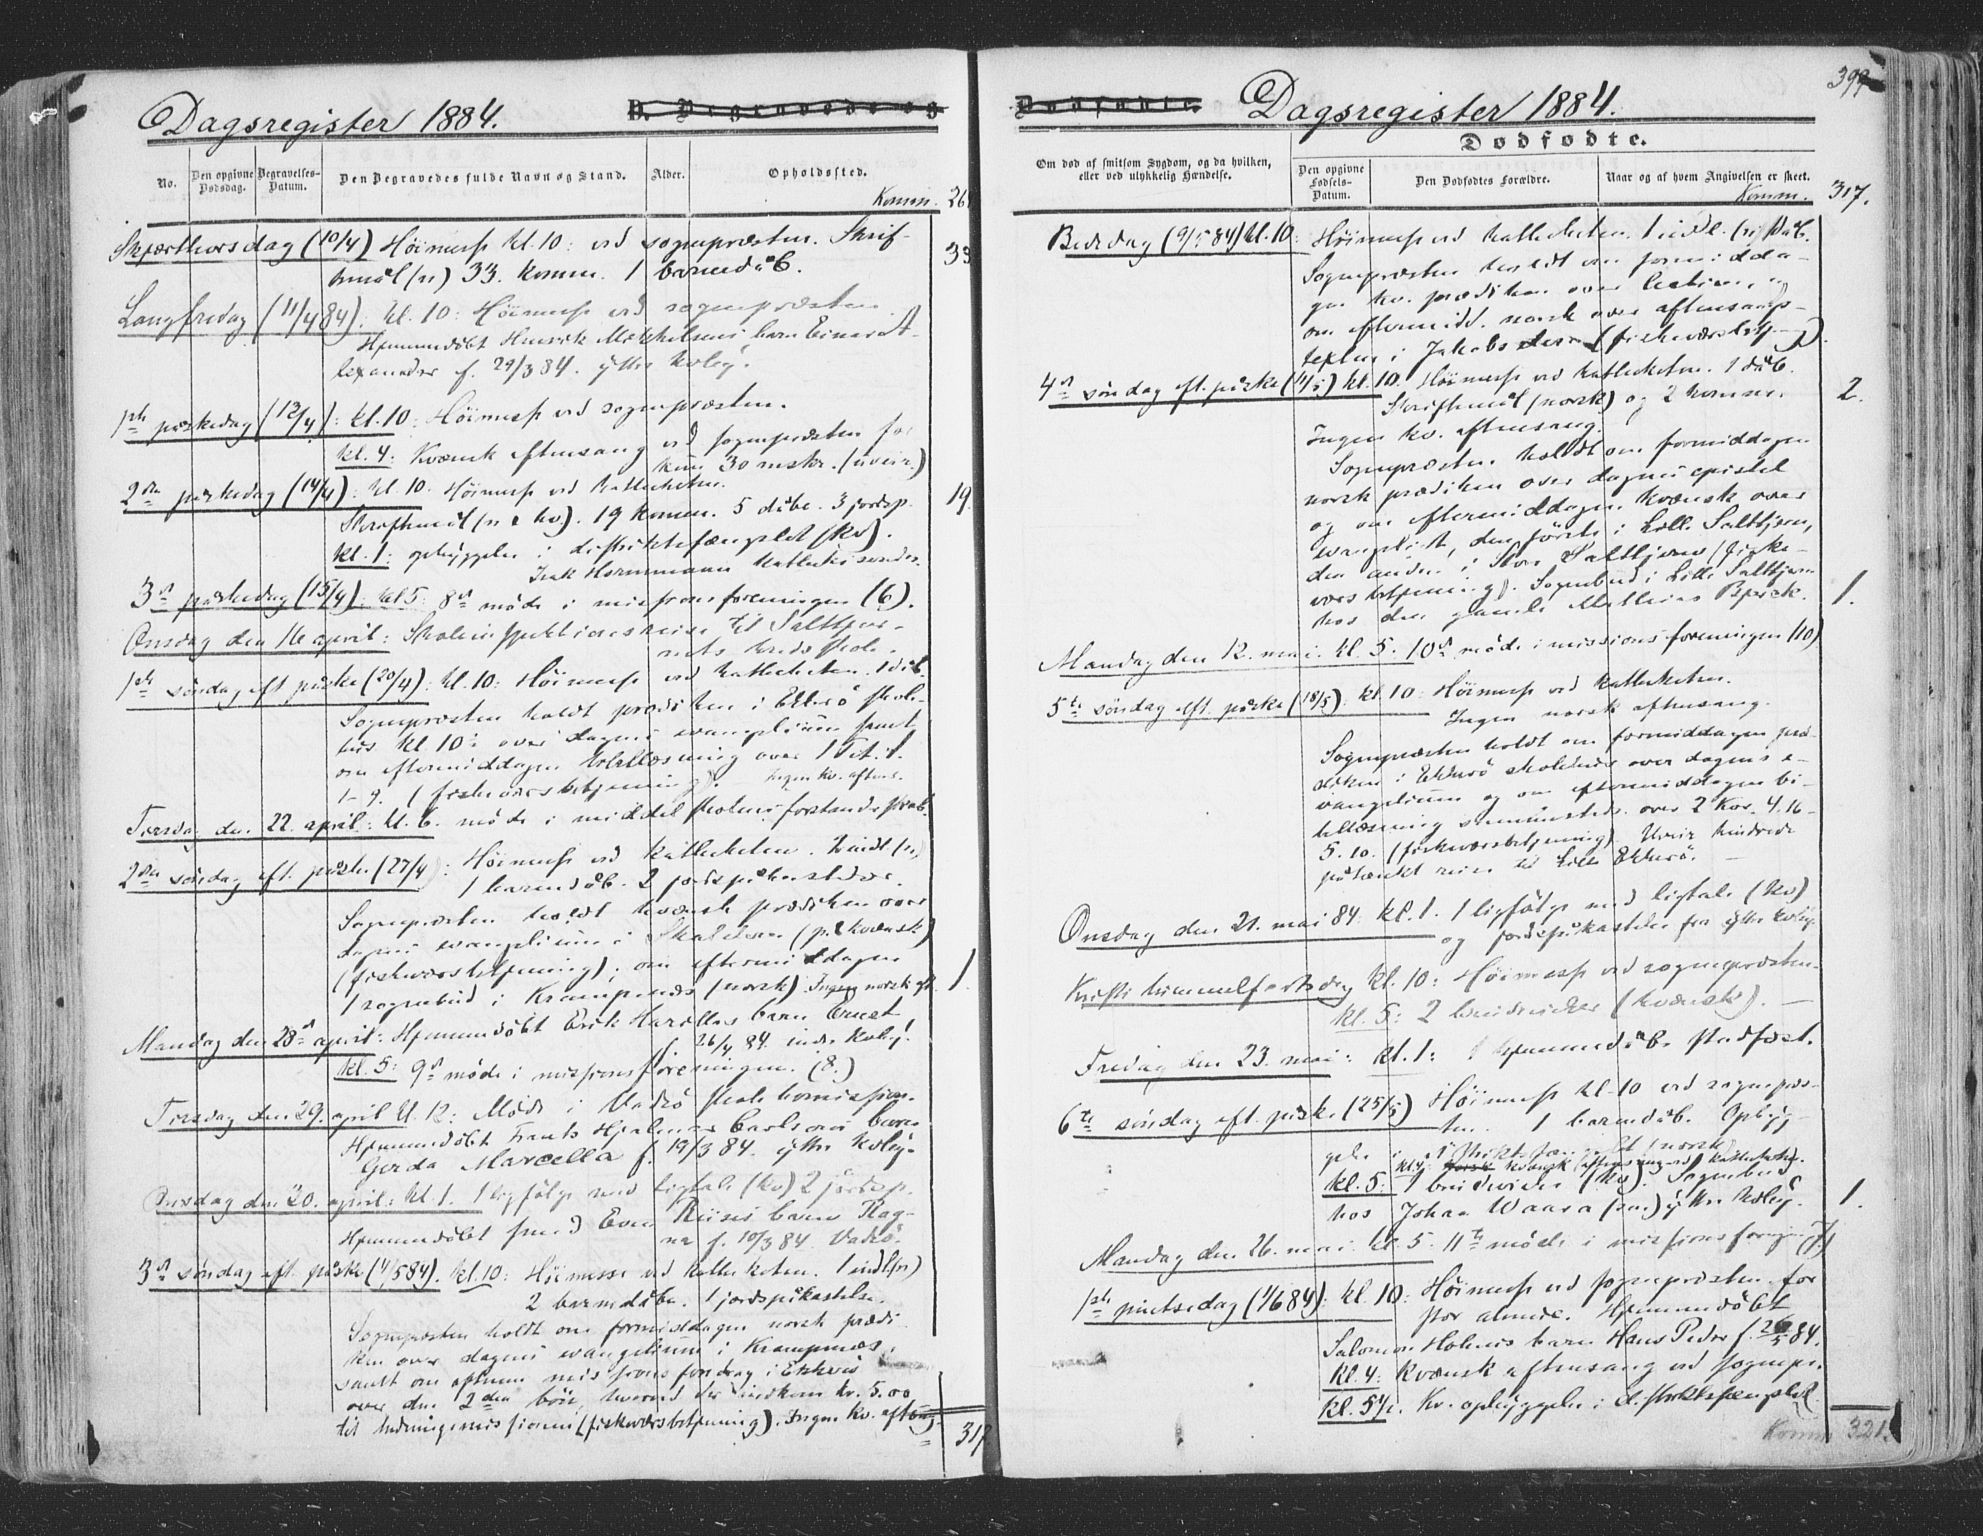 Dagsregister 1884.
B. Begravede og
No.
Den opgivne Dødsdag.
Begravelses-Datum.
Den Begravedes fulde Navn og Stand.
Alder.
Opholdssted.
Komm. 26
Skjærthorsdag (10/4) Höimesse kl. 10: ved sognepræsten. Skrif-
temål (n) 33. komm. 1 barnedåb. 33
Langfredag (11/4 84): kl. 10: Höimesse ved sognepræsten.
Hjemmedöbt Henrik Mikkelsens barn Einar A-
lexander f. 29/3 84. ytre kvby.
1ste påskedag (13/4): kl. 10: Höimesse ved sognepræsten.
kl. 4: Kvænsk aftensang ved sognepræsten for
kun 30 mskr. (uveir.)
2den påskedag (14/4): kl. 10: Höimesse ved katecheten.
Skriftemål (n & kv). 19 komm. 5 dåbe. 3 jordsp. 19.
kl. 1: opbyggelse i distriktsfængslet (kv).
Isak Hernmann katechiseredes.
3die påskedag (15/4): kl. 5: 8de möde i missionsforeningen (6).
Onsdag den 16 april: Skoleinspektionsreise til Salttjer-
nets kredsskole.
1ste söndag eft. påske (20/4): kl. 10: Höimesse ved katecheten. 1 dåb.
Sognepræsten holdt prædiken i Ekkerö skole-
hus kl. 10: over dagens evangelium samt
om eftermiddagen bibellæsning over 1 Tit. 1.
1-9. (fiskeværsbetjening). Ingen kv. aftens.
Tirsdag den 22. april: kl. 6. möde i middelskolens forstanderskab.
2den söndag eft. påske (27/4): Höimesse ved katecheten. 2 indl (n)
1 barnedåb. 2 jordspåkastelser.
Sognepræsten holdt kvænsk prædiken over
dagens evangelium i Skaldnes (p. kvænsk)
(fiskeværsbetjening); om eftermiddagen
1 sognebud i Krampenæs (norsk). Ingen norsk aft. 1.
Mandag den 28de april: Hjemmedöbt Erik Harallas barn Ernst
f. 26/4 84. indre kvby.
kl. 5: 9de möde i missionsforeningen. (8.)
Tirsdag den 29. april kl. 12: Möde i Vadsö skolekomission.
Hjemmedöbt Frants Hjalmar Carlsons barn
Gerda Marcella f. 19/3 84. ytre kvby.
Onsdag den 30. april: kl. 1. 1 ligfölge med ligtale (kv) 2 jordsp.
Hjemmedöbt smed Even Riises barn Rag-
na f. 10/3 84 Vadsö.
3die söndag eft. påske (4/5 84). kl. 10: Höimesse ved katecheten. 1 indl (n)
2 barnedåbe. 1 jordspåkastelse.
Sognepræsten holdt om formiddagen norsk prædi-
ken over dagens evangelium i Krampenæs,
samt om aftenen missionsforedrag i Ekkerö
over den 2den bön, hvorved der indkom kr. 5.00
til hedningemissionen (fiskeværsbetjening). Ingen kv. aftsng.
317
Dødfødte.
Dagsregister 1884.
399
Dødfødte.
Om død af smitsom Sygdom, og da hvilken, eller ved ulykkelig Hændelse.
Den opgivne Fødsels-Datum.
Den Dødfødtes Forældre.
Naar og af hvem Angivelsen er skeet.
Komm. 317.
Bededag (9/5 84) kl. 10: Höimesse ved katecheten. 1 indl. (n) 1 dåb.
Sognepræsten holdt om formidda-
gen kv. prædiken over lectien,
om eftermidd. norsk over aftensangs-
texten i Jakobselven (fiskeværsbetjening).
4de söndag eft. påske (11/5) kl. 10: Höimesse ved katecheten. 1 dåb.
Skriftemål (norsk) og 2 komm. 2.
Ingen kv. aftensang.
Sognepræsten holdt om formiddagen
norsk prædiken over dagens epistel
og om eftermiddagen kvænsk over
evangeliet, den förste i Lille Salttjern,
den anden i Store Salttjern (fiske-
værsbetjening). Sognebud i Lille Salttjern
hos den gamle Mathias 1.
Mandag den 12. mai. kl. 5. 10de möde i missionsforeningen (10)
5te söndag eft. påske (18/5): kl. 10: Höimesse ved katecheten.
Ingen norsk aftensang.
Sognepræsten holdt om formiddagen præ-
diken i Ekkerö skolehus over dagens e-
vangelium og om eftermiddagen bi-
bellæsning sammesteds over 2 Kor. 4.16-
5.10. (fiskeværsbetjening). Uveir hindrede
påtænkt reise til Lille Ekkerö.
Onsdag den 21. mai 84. kl. 1. 1 ligfölge med ligtale (kv)
og jordspåkastelse fra ytre kvby.
Kristi himmelfartsdag kl. 10: Höimesse ved sognepræsten.
kl. 5: 2 brudevielser (kvænsk).
Fredag den 23. mai: kl. 1: 1 hjemmedåb stadfæst.
6te söndag eft. påske (25/5) Höimesse kl. 10 ved sognepræs-
ten. 1 barnedåb. Opbyg-
gelse i distriktsfængslet (norsk)
kl. 4: norsk kvænsk aftensang ved katecheten.
kl. 5: 1 brudevielse (kv). Sognebud
hos Johan Waara ytre kvby. 1.
Mandag den 26. mai kl. 5. 11te möde i missionsforening (7)
1ste pintsedag (1/6 84): kl. 10: Höimesse ved sognepræsten for
stor almue. Hjemmedöbt
Salomon Holmis barn Hans Peder f. 26/5 84.
kl. 4: kvænsk aftensang ved sognepr.
kl. 5½. Kv. opbyggelse i distriktsfængslet
Komm 321.